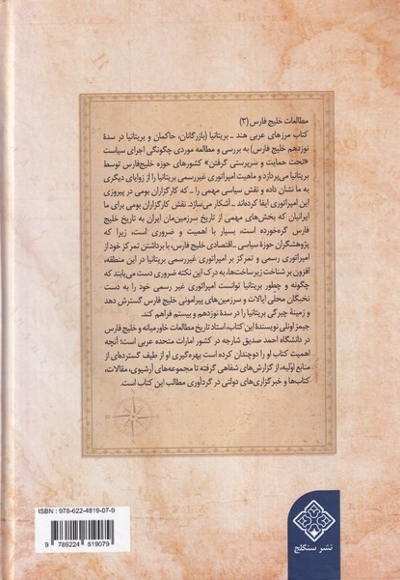 مطالعات خلیج فارس (۳)
کتاب مرزهای عربی هند ـ بریتانیا (بازرگانان، حاکمان و بریتانیا در سدهٔ
نوزدهم خلیج فارس) به بررسی و مطالعه موردی چگونگی اجرای سیاست
«تحت حمایت و سرپرستی گرفتن» کشورهای حوزه خلیج‌فارس توسط
بریتانیا می‌پردازد و ماهیت امپراتوری غیررسمی بریتانیا را از زوایای دیگری
به ما نشان داده و نقش سیاسی مهمی را ـ که کارگزاران بومی در پیروزی
این امپراتوری ایفا کرده‌اند ـ آشکار می‌سازد. نقش کارگزاران بومی برای ما
ایرانیان که بخش‌های مهمی از تاریخ سرزمین‌مان ایران به تاریخ خلیج
فارس گره‌خورده است، بسیار با اهمیت و ضروری است، زیرا که
پژوهشگران حوزهٔ سیاسی ـ اقتصادی خلیج فارس، با برداشتن تمرکز خود از
امپراتوری رسمی و تمرکز بر امپراتوری غیررسمی بریتانیا در این منطقه،
افزون بر شناخت زیرساخت‌ها، به درک این نکته ضروری دست می‌یابند که
چگونه و چطور بریتانیا توانست امپراتوری غیر رسمی خود را به دست
نخبگان محلی ایالات و سرزمین‌های پیرامونی خلیج فارس گسترش دهد
و زمینهٔ چیرگی بریتانیا را در سدهٔ نوزدهم و بیستم فراهم کند.
جیمز اونلی نویسندهٔ این کتاب، استاد تاریخ مطالعات خاورمیانه و خلیج فارس
در دانشگاه احمد صدیق شارجه در کشور امارات متحده عربی است؛ آنچه
اهمیت کتاب او را دوچندان کرده است بهره‌گیری او از طیف گسترده‌ای از
منابع اوّلیه، از گزارش‌های شفاهی گرفته تا مجموعه‌های آرشیوی، مقالات،
کتاب‌ها و خبرگزاری‌های دولتی در گردآوری مطالب این کتاب است.
ISBN : 978-622-4819-07-9
9 786224 819079
نشر سنگلج